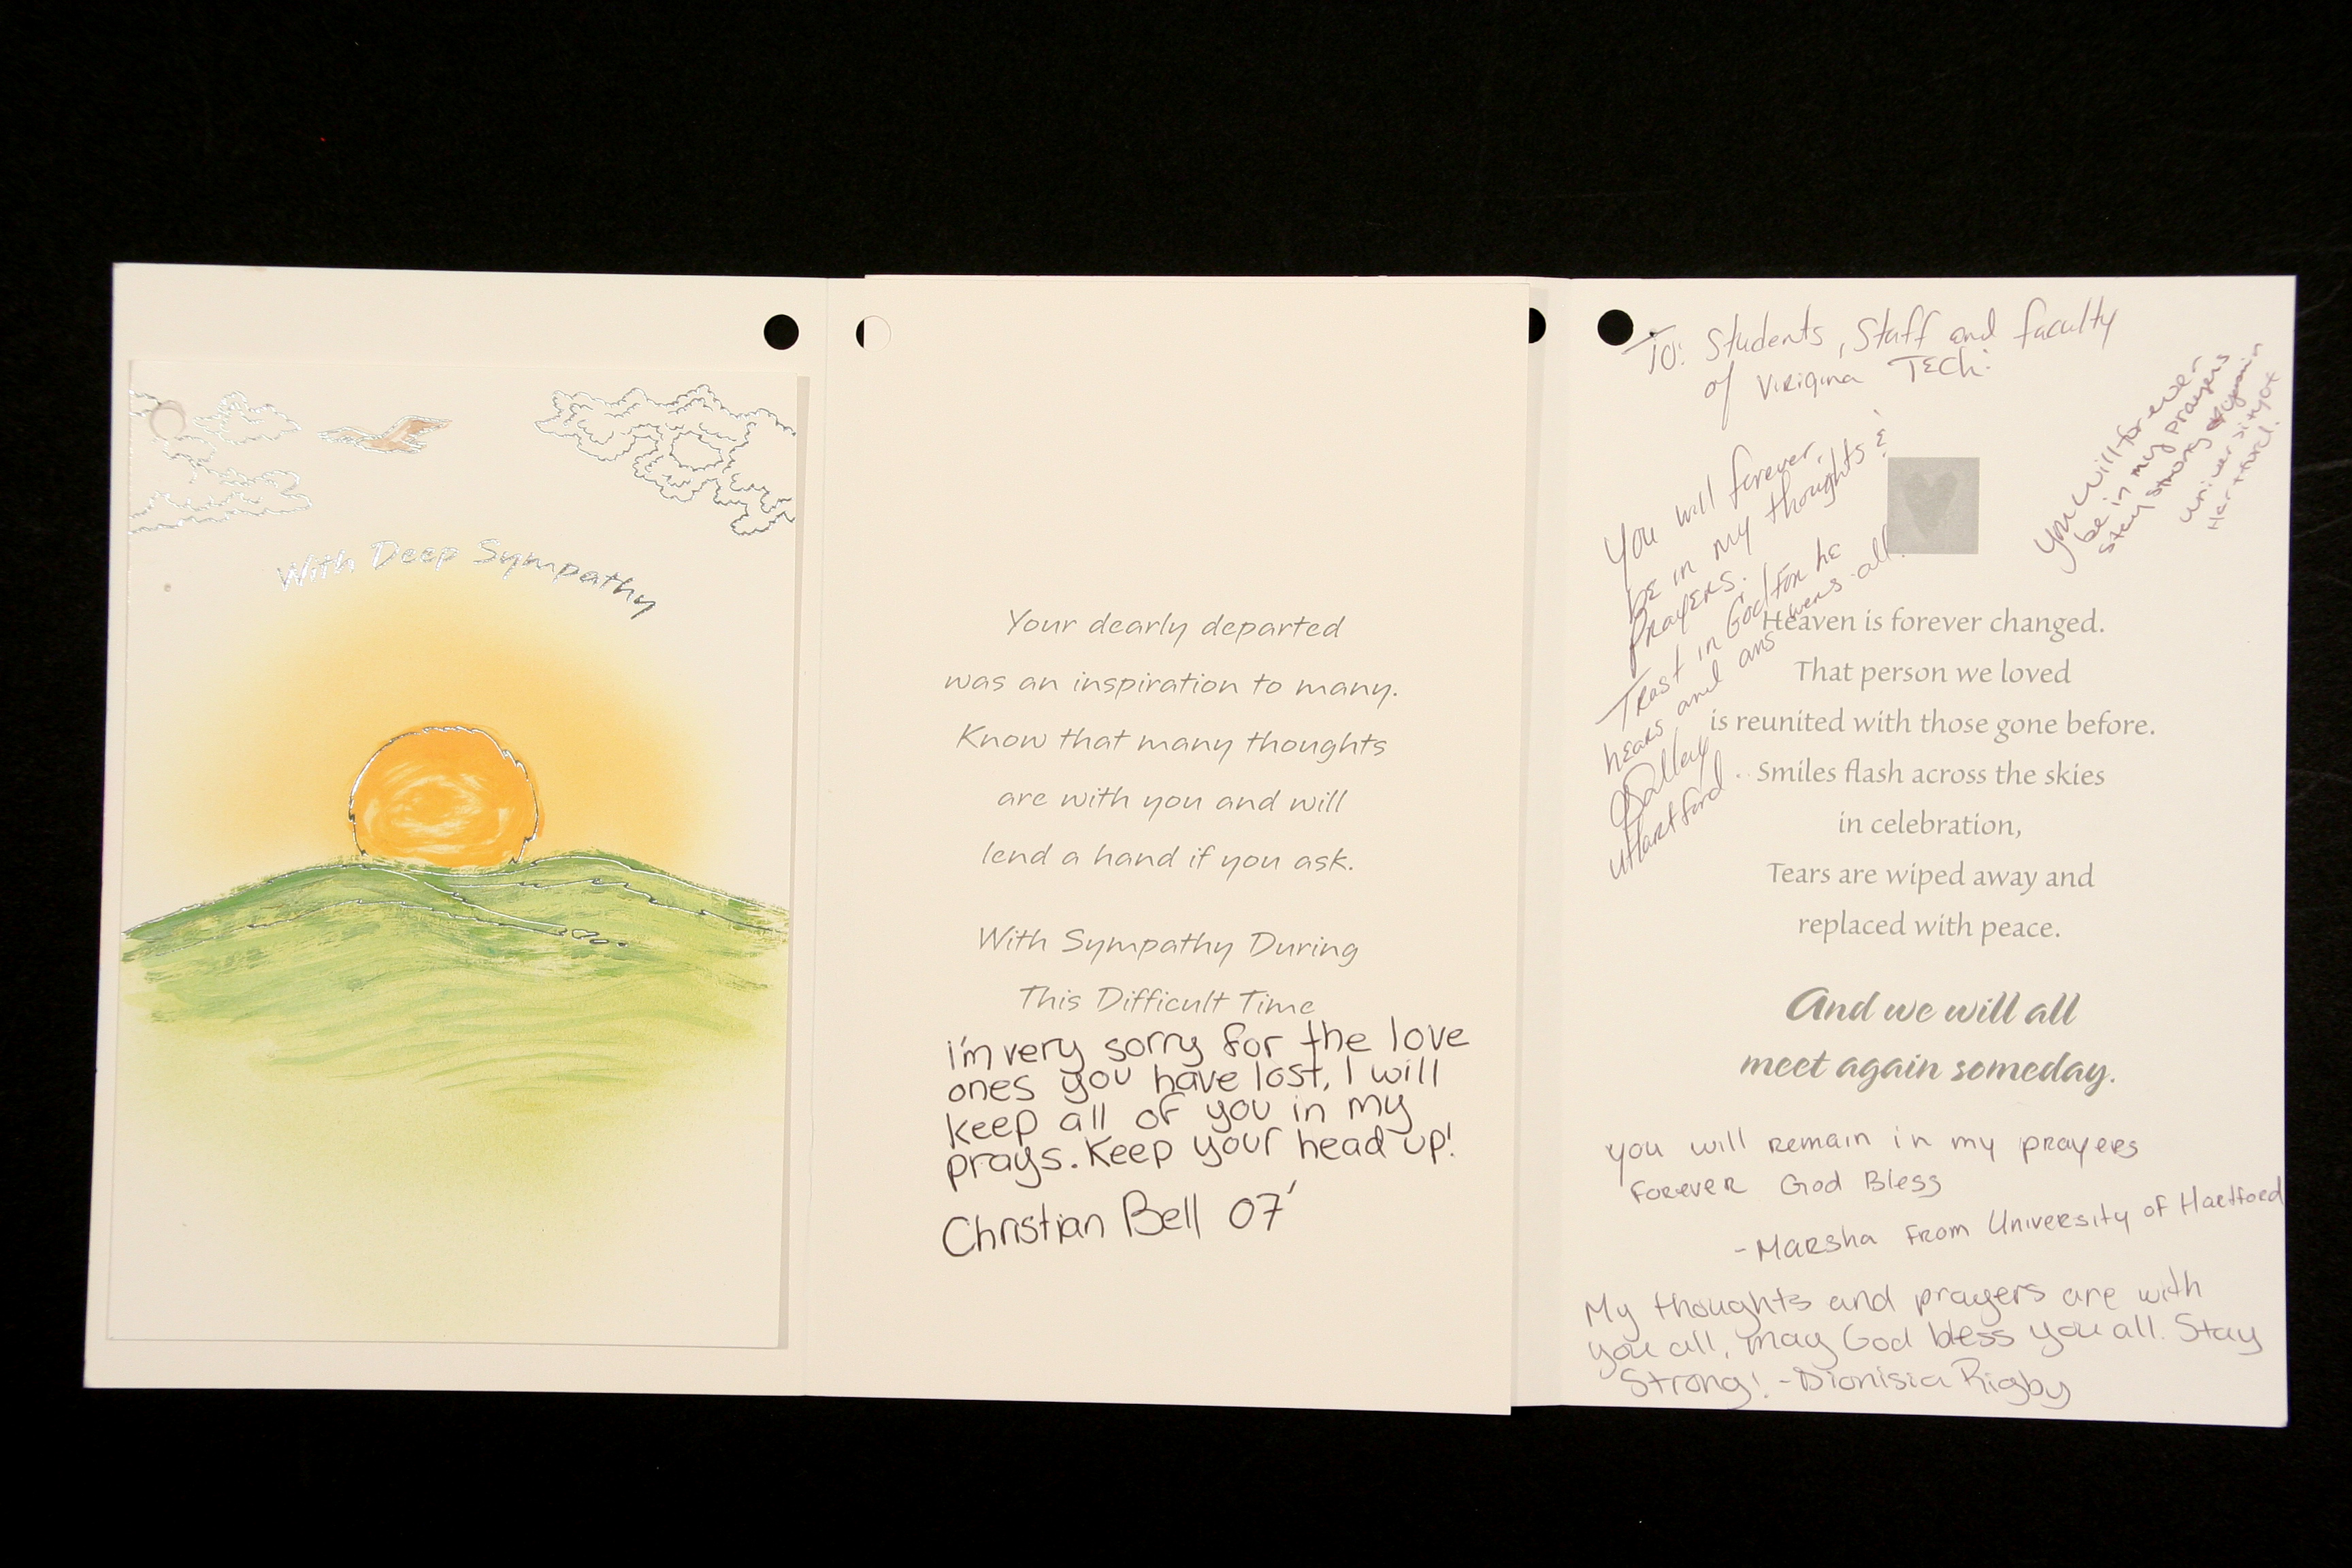 With Deep Sympathy
Your dearly departed
was an inspiration to many.
Know that many thoughts
are with you and will
lend a hand if you ask.
With Sympathy During
This Difficult Time
i'm very sorry for the love
ones you have lost, I will
keep all of you in my
prays. Keep your head up!
Christian Bell 07'
To: Students, Staff and faculty
of Virigina TECH:
You will forever
be in my thoughts &
prayers.
Trust in God for he
hears and answers all.
UHartford
you will forever
be in my prayers
stay strong
University of
Hartford.
Heaven is forever changed.
That person we loved
is reunited with those gone before.
Smiles flash across the skies
in celebration,
Tears are wiped away and
replaced with peace.
And we will all
meet again someday.
you will remain in my prayers
forever God Bless
-Marsha from University of Hartford
My thoughts and prayers are with
you all, may God bless you all. Stay
Strong! -Dionisia Rigby